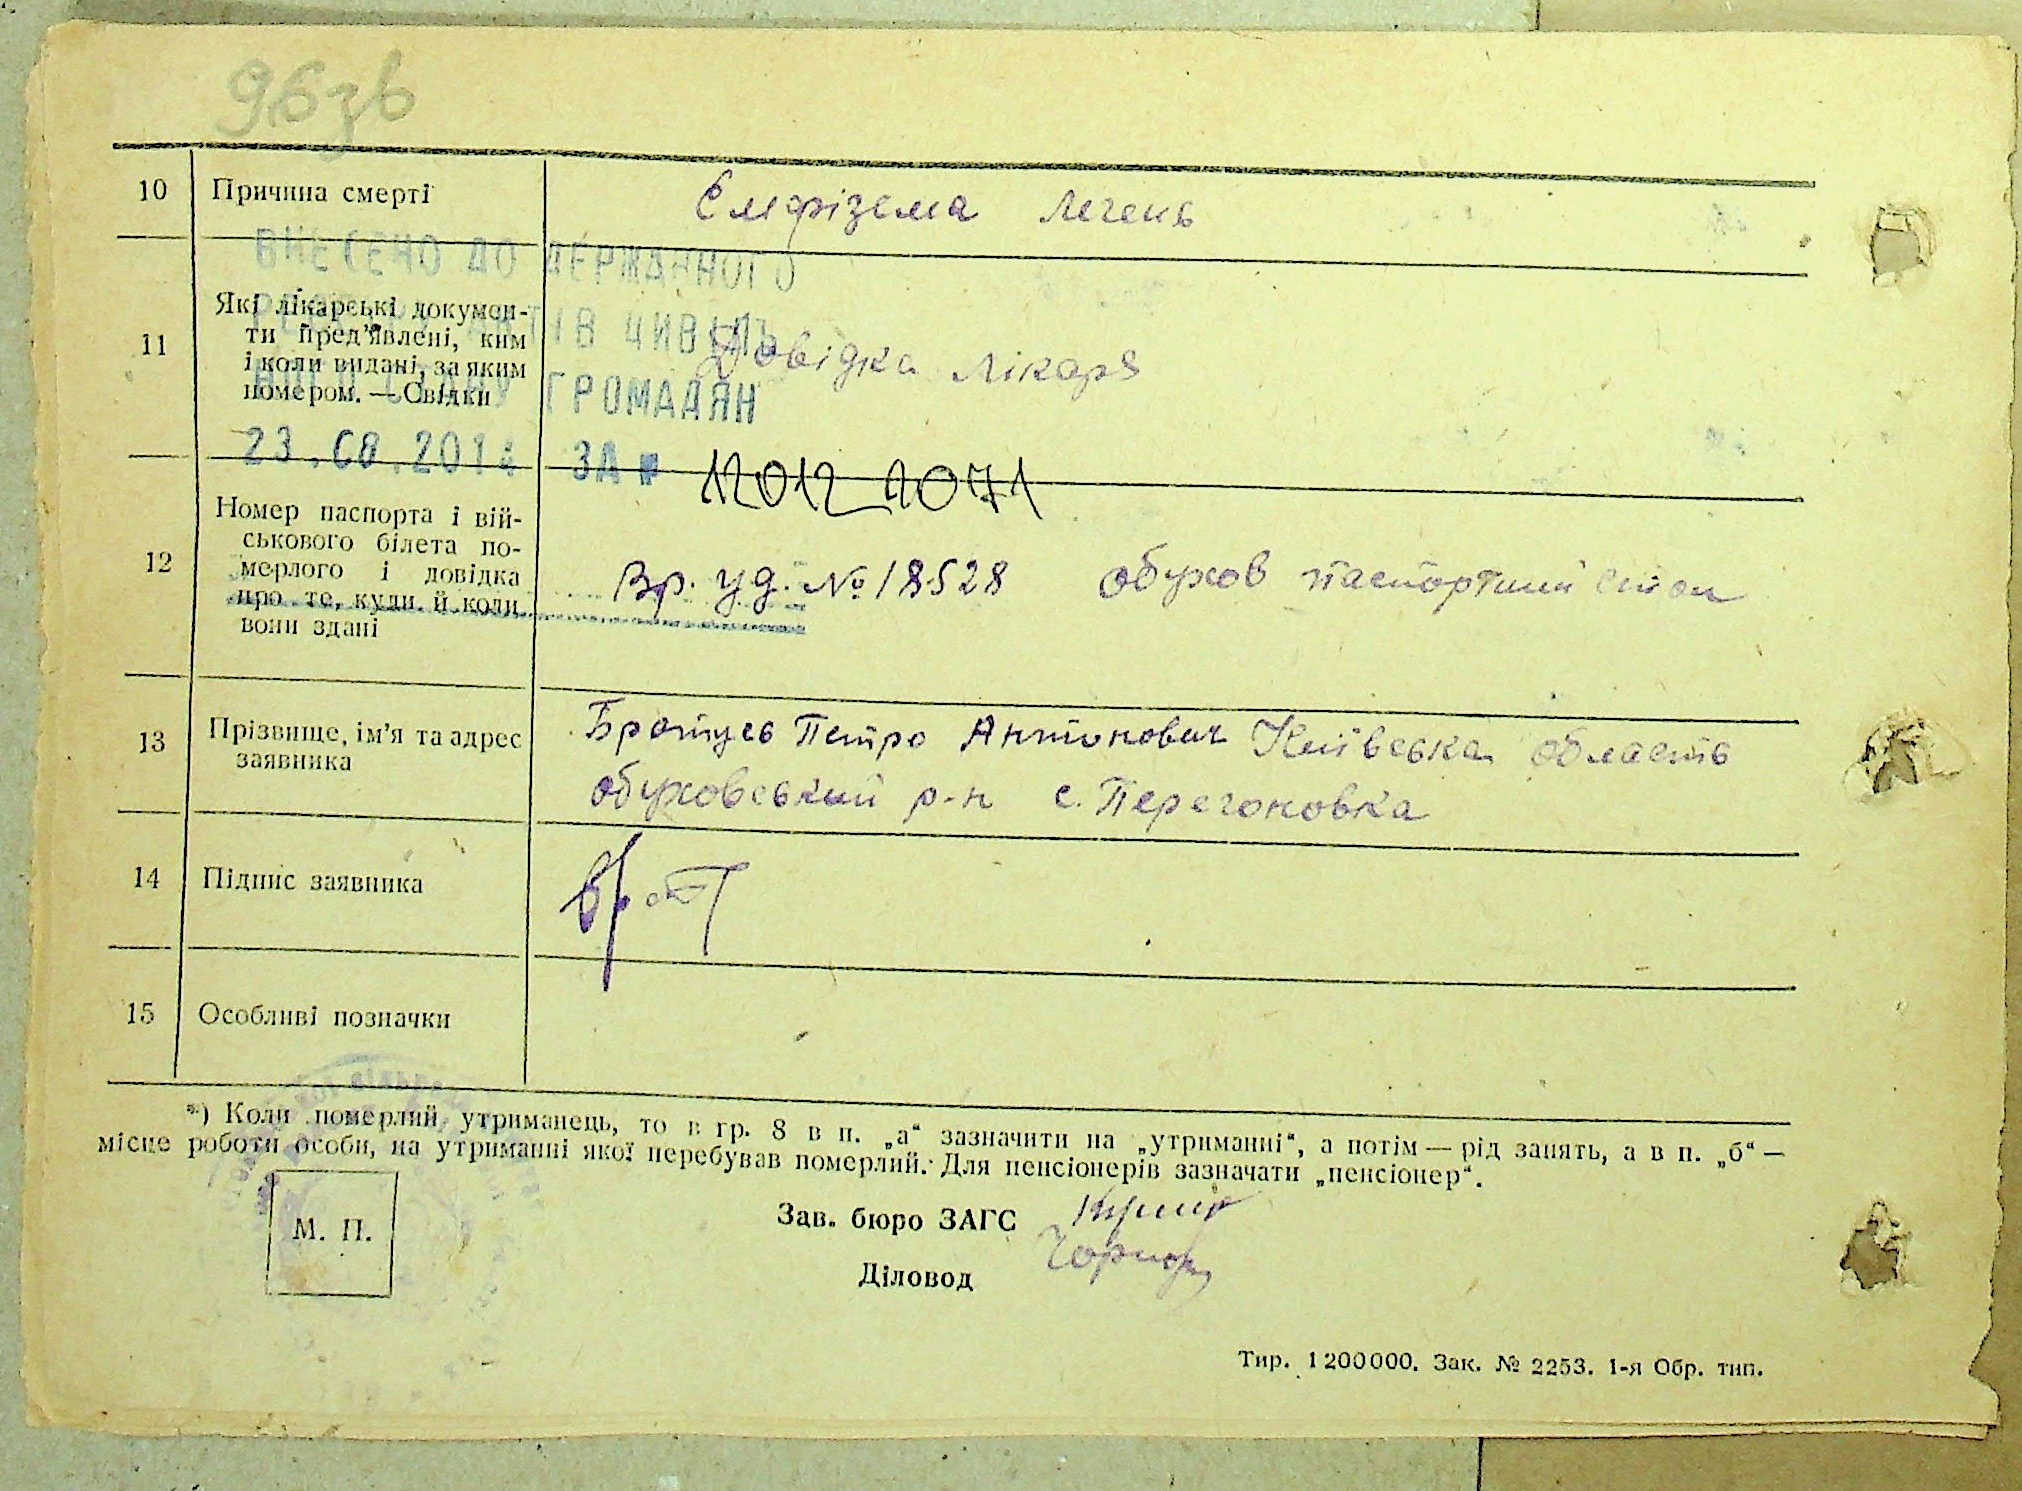 96зв
10 Причина смерті Емфізема легень
ВНЕСЕНО ДО ДЕРЖАВНОГО
РЕЄСТРУ АКТІВ ЦИВІЛЬ
НОГО СТАНУ ГРОМАДЯН
23.08.2014 ЗА № 12012 2071
11 Які лікарські докумен-
ти пред’явлені, ким
і коли видані, за яким
номером. — Свідки
Довідка лікаря
12 Номер паспорта і вій-
ськового білета по-
мерлого і довідка
про те, куди й коли
вони здані
Вр. уд. № 18528 обухов паспортний стол
13 Прізвище, ім’я та адрес
заявника
Братусь Петро Антонович Київська область
обуховський р-н с. Перегоновка
14 Підпис заявника
15 Особливі позначки
*) Коли померлий утриманець, то в гр. 8 в п. „а“ зазначити на „утриманні“, а потім — рід занять, а в п. „б“ —
місце роботи особи, на утриманні якої перебував померлий. Для пенсіонерів зазначати „пенсіонер“.
М. П.
Зав. бюро ЗАГС
Діловод
Тир. 1 200 000. Зак. № 2253. 1-я Обр. тип.